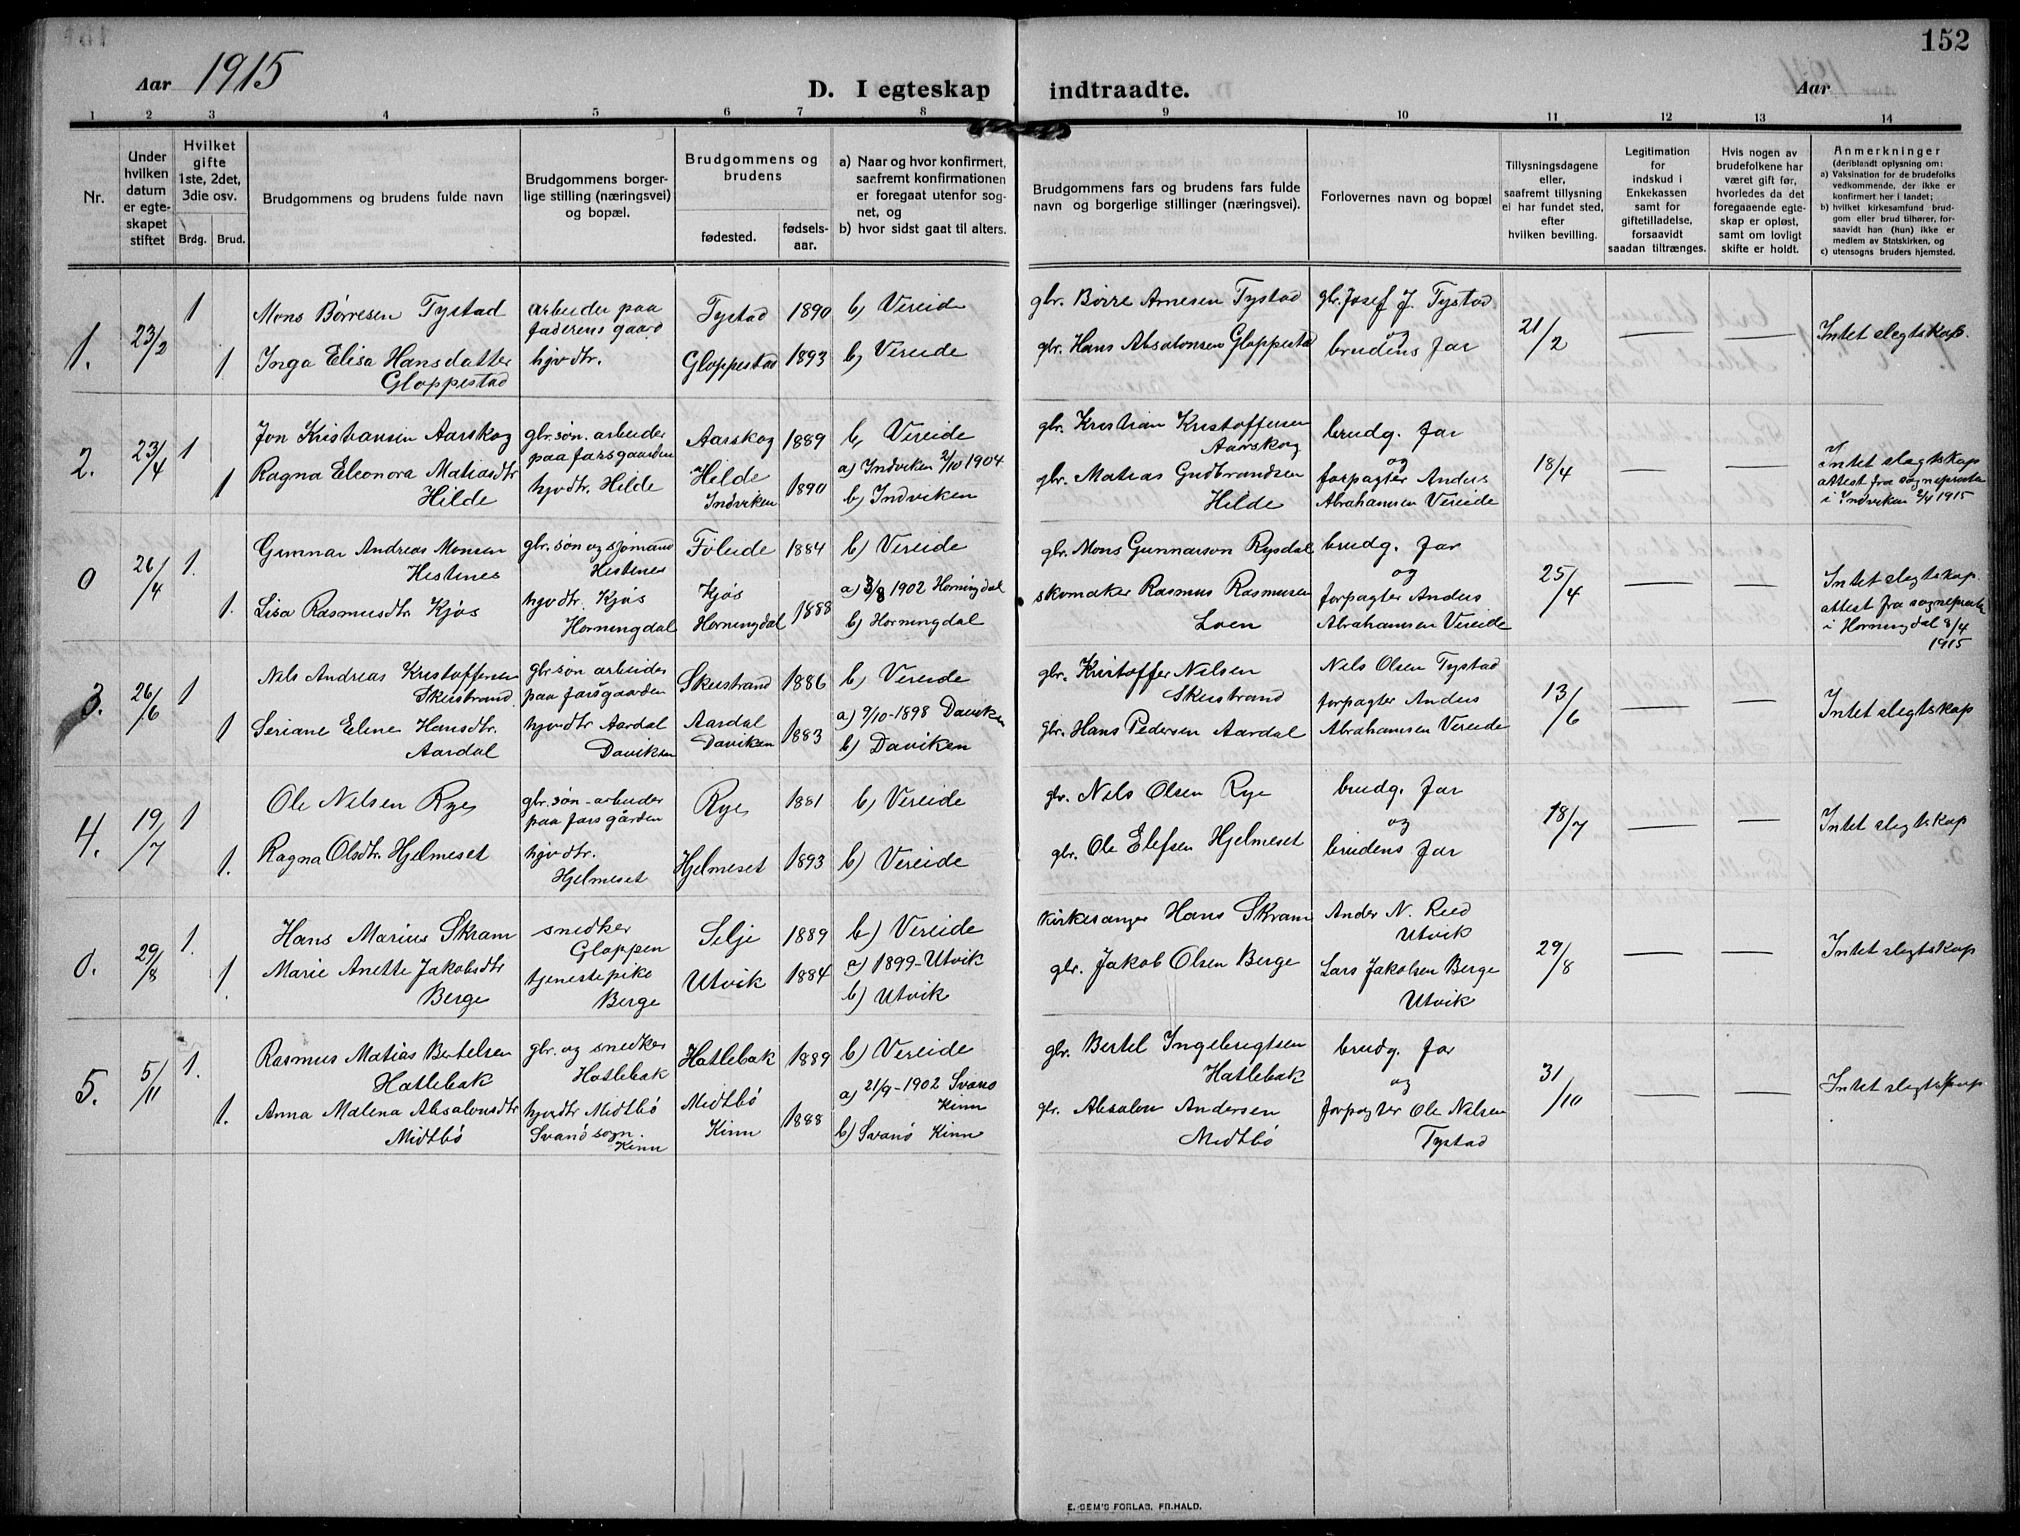 152
Aar 1915
D. I egteskap indtraadte.
Aar
1 2 3 4 5 6 7 8 9 10 11 12 13 14
Nr.
Under
hvilken
datum
er egte-
skapet
stiftet
Hvilket
gifte
1ste, 2det,
3die osv.
Brdg. Brud.
Brudgommens og brudens fulde navn
Brudgommens borger-
lige stilling (næringsvei)
og bopæl.
Brudgommens og
brudens
fødested.
fødsels-
aar.
a) Naar og hvor konfirmert,
saafremt konfirmationen
er foregaat utenfor sog-
net, og
b) hvor sidst gaat til alters.
Brudgommens fars og brudens fars fulde
navn og borgerlige stillinger (næringsvei).
Forlovernes navn og bopæl
Tillysningsdagene
eller,
saafremt tillysning
ei har fundet sted,
efter
hvilken bevilling.
Legitimation
for
indskud i
Enkekassen
samt for
giftetilladelse,
forsaavidt
saadan tiltrænges.
Hvis nogen av
brudefolkene har
været gift før,
hvorledes da det
foregaaende egte-
skap er opløst,
samt om lovligt
skifte er holdt.
Anmerkninger
(deriblandt oplysning om:
a) Vaksination for de brudefolks
vedkommende, der ikke er
konfirmert her i landet;
b) hvilket kirkesamfund brud-
gom eller brud tilhører, for-
saavidt han (hun) ikke er
medlem av Statskirken, og
c) utensogns bruders hjemsted.
1. 23/2 1 Mons Børresen Tystad
arbeider paa
faderens gaard
Tystad 1890 b) Vereide
gbr. Børre Arnesen Tystad
gbr. Josef J. Tystad
og
brudens far
21/2 — — Intet slegtskap.
1 Inga Elisa Hansdatter
Gloppestad
hjvdtr.
Gloppestad 1893 b) Vereide
gbr. Hans Absalonsen Gloppestad
2. 23/4 1 Jon Kristiansen Aarskog
gbr. søn. arbeider
paa farsgaarden
Aarskog 1889 b) Vereide
gbr. Kristian Kristoffersen
Aarskog
brudg. far
og
forpagter Anders
Abrahamsen Vereide
18/4 — — Intet slegtskap
attest fra sognepresten
i Indviken 2/4 1915
1 Ragna Eleonora Matiasdtr
Hilde
hjvdtr. Hilde
Hilde
Indviken
1890 a) Indviken 2/10 1904
b) Indviken
gbr. Matias Gudbrandsen
Hilde
0 26/4 1. Gunnar Andreas Monsen
Hestenes
gbr. søn og sjømand
Hestenes
Føleide 1884 b) Vereide
gbr. Mons Gunnarson Rysdal
brudg. far
og
forpagter Anders
Abrahamsen Vereide
25/4 — — Intet slegtskap.
attest fra sogneprest
i Horningdal 8/4
1915
1. Lisa Rasmusdtr Kjøs
hjvdtr. Kjøs
Horningdal
Kjøs
Horningdal
1888 a) 3/8 1902 Horningdal
b) Horningdal
skomaker Rasmus Rasmusen
Loen
3. 26/6 1 Nils Andreas Kristoffersen
Skeistrand.
gbr. søn arbeider
paa farsgaarden
Skeistrand 1886 b) Vereide
gbr. Kristoffer Nilsen
Skeistrand
Nils Olsen Tystad
forpagter Anders
Abrahamsen Vereide
13/6 — — Intet slegtskap
1 Seriane Eline Hansdtr.
Aardal
hjvdtr Aardal
Daviken
Aardal
Daviken
1883 a) 9/10-1898 Daviken
b) Daviken
gbr. Hans Pedersen Aardal
4. 19/7 1 Ole Nilsen Ryes
gbr. søn - arbeider
paa farsgården
Rye 1881 b) Vereide
gbr. Nils Olsen Rye
brudg. far
og
brudens far
18/7 — — Intet slegtskap
1. Ragna Olsdtr. Hjelmeset
hjvdtr.
Hjelmeset
Hjelmeset 1893 b) Vereide
gbr. Ole Elefsen Hjelmeset
0. 29/8 1. Hans Marius Skram
snedker
Gloppen
Selje 1889 b) Vereide
kirkesanger Hans Skram
Ander N. Reed
Utvik
29/8 — — Intet slegtskap
1 Marie Anette Jakobsdtr
Berge
tjenestepike
Berge
Utvik 1884 a) 1899-Utvik
b) Utvik
gbr. Jakob Olsen Berge
Lars Jakobsen Berge
Utvik
5. 5/11 1. Rasmus Matias Bertelsen
Hatlebak
gbr. og snedker
Hatlebak
Hatlebak 1889 b) Vereide
gbr. Bertel Ingebrigtsen
Hatlebak
brudg. far
og
forpagter Ole Nilsen
Tystad
31/10 — — Intet slegtskap
1. Anna Malena Absalonsdtr
Midtbø
hjvdtr Midtbø
Svanø sogn.
Kinn
Midtbø
Kinn
1888 a) 21/9-1902 Svanø
Kinn
b) Svanø Kinn
gbr. Absalon Andersen
Midtbø
E. SEM'S FORLAG, FR.HALD.